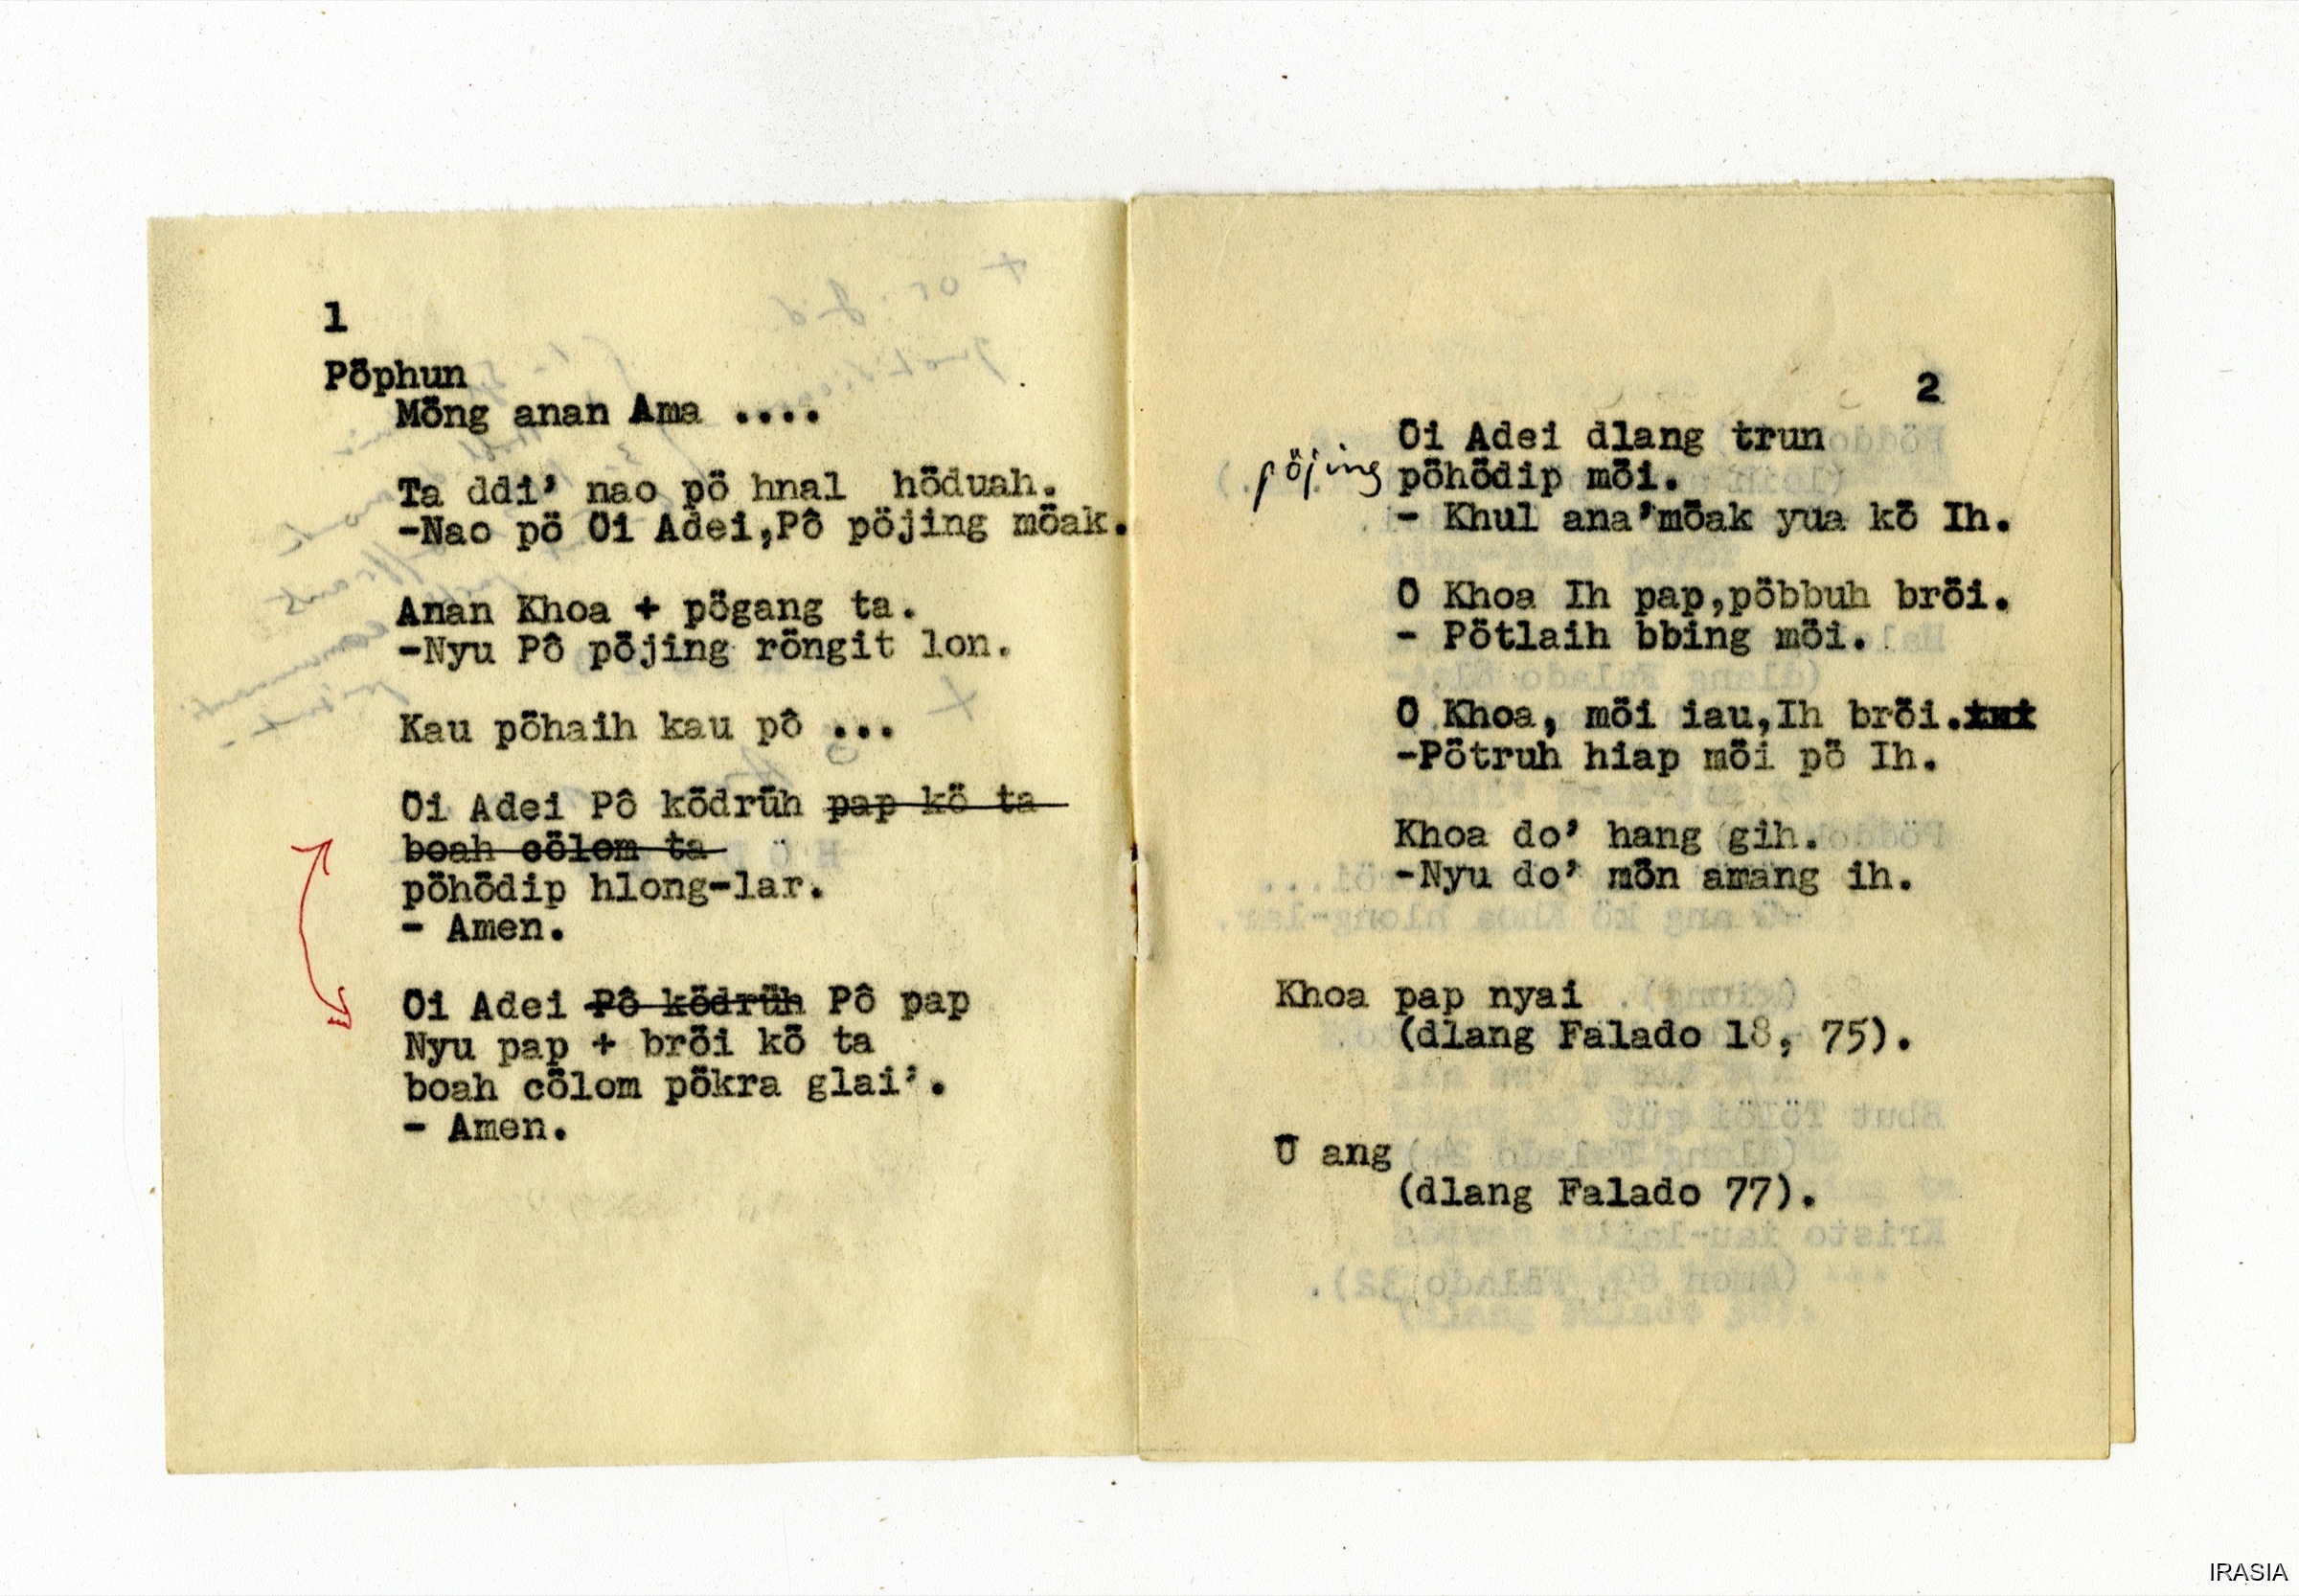 1
Pöphun
Möng anan Ama ....
Ta ddi' nao pö hnal höduah.
-Nao pö Oi Adei,Pô pöjing möak.
Anan Khoa + pögang ta.
-Nyu Pô pöjing röngit lon.
Kau pöhaih kau pô ...
Oi Adei Pô ködrüh pap kö ta
boah cölom ta
pöhödip hlong-lar.
- Amen.
Oi Adei Pô ködrüh Pô pap
Nyu pap + bröi kö ta
boah cölom pökra glai'.
- Amen.
2
Oi Adei dlang trun
pöjing pöhödip möi.
- Khul ana'möak yua kö Ih.
O Khoa Ih pap,pöbbuh bröi.
- Pötlaih bbing möi.
O Khoa, möi iau,Ih bröi.
-Pötruh hiap möi pö Ih.
Khoa do' hang gih.
-Nyu do' mön amang ih.
Khoa pap nyai
(dlang Falado 18, 75).
Ü ang
(dlang Falado 77).
IRASIA